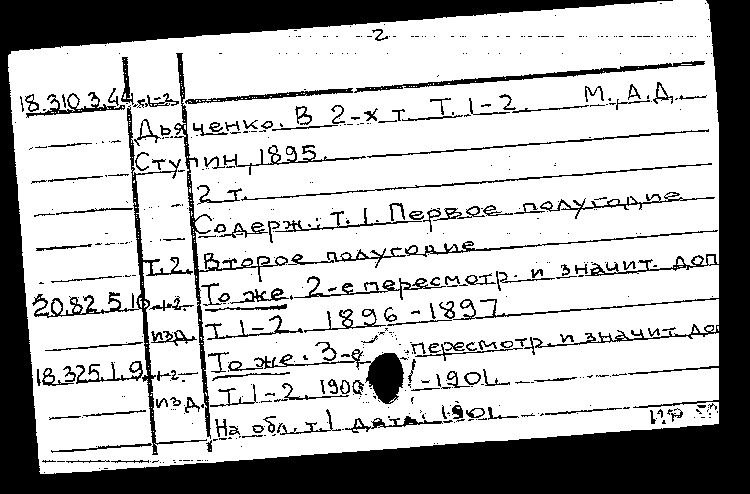 2
18.310.3.44-1-2
Дьяченко. В 2-х т. Т. 1-2. М., А.Д.
Ступин, 1895.
2 т.
Содерж.: Т. 1. Первое полугодие
Т. 2. Второе полугодие
20.82.5.16-1-2. То же. 2-е пересмотр. и значит. доп
изд. Т. 1-2. 1896-1897.
18.325.1.9-1-2. То же. 3-е пересмотр. и значит. доп
изд. Т. 1-2. 1900-1901.
На обл. т. 1 дата: 1901.